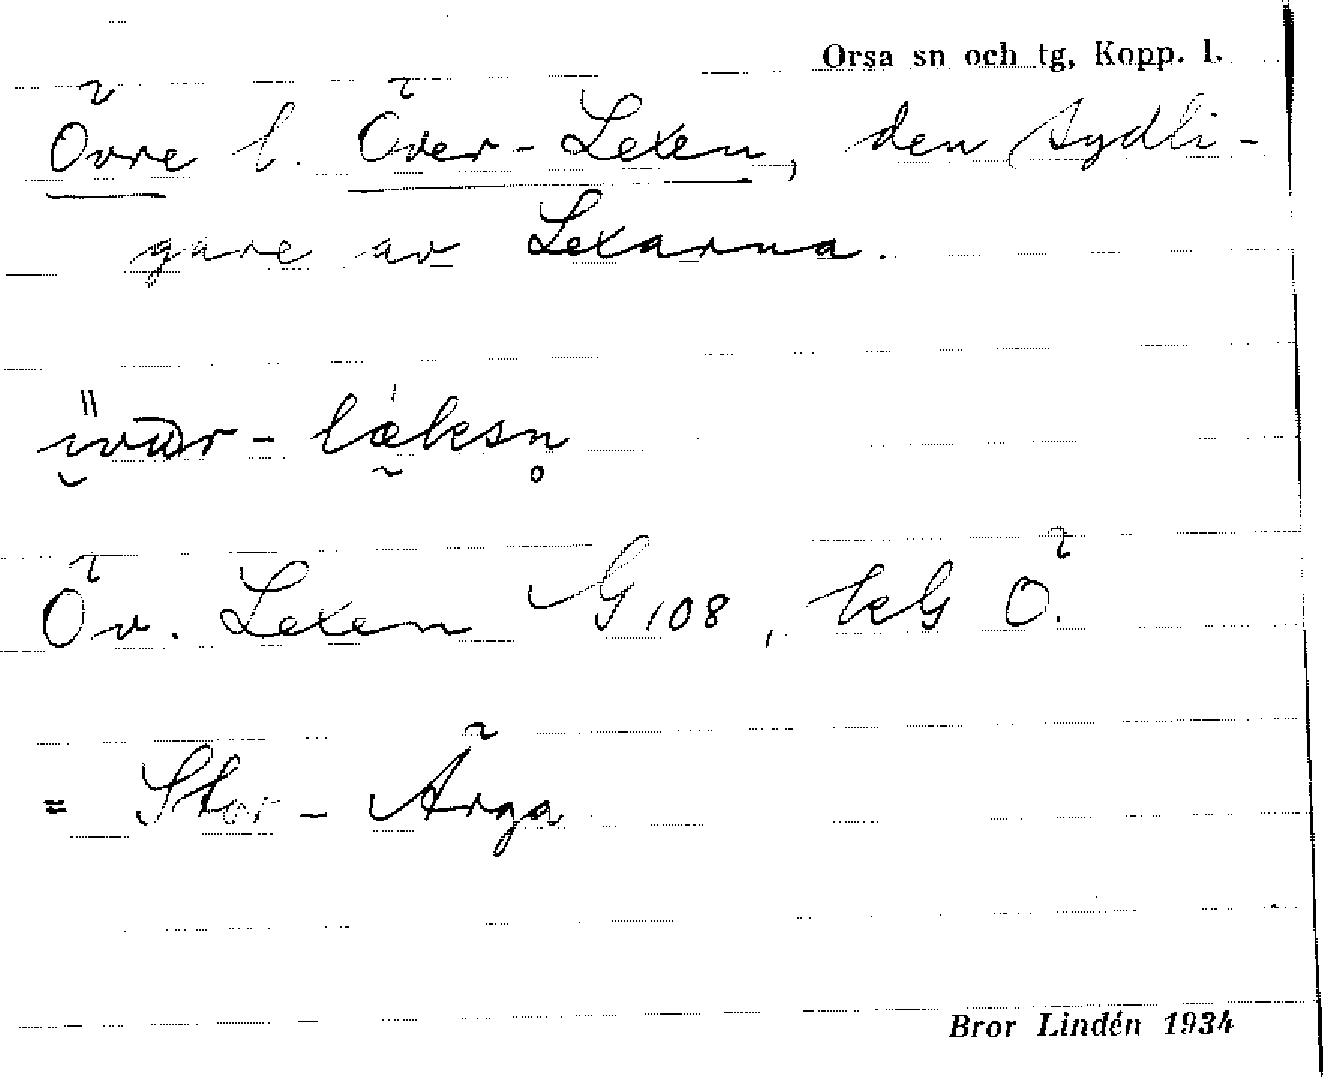 Orsa sn och tg, Kopp. l.
Övre l. Över-Lexen, den sydli-
gare av Lexarna.
Öv. Lexen G 108, kG Ö.
= Stor-Ärga
Bror Lindén 1934